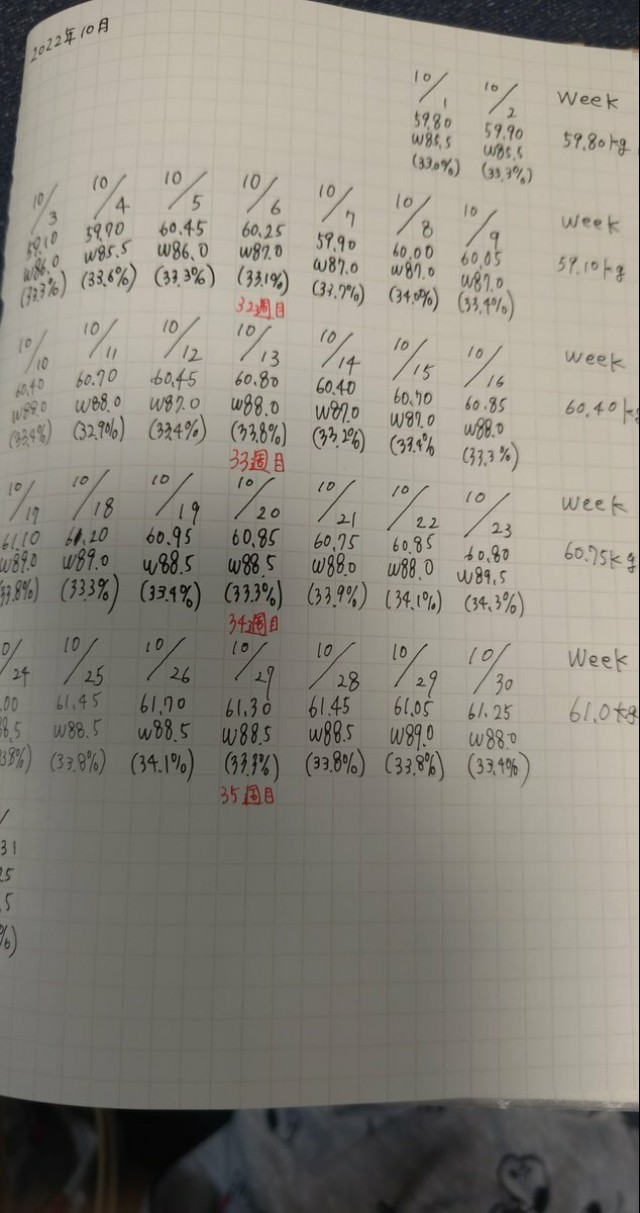 2022年10月
10/1 10/2 Week
59.80 59.90 59.80kg
W85.5 W85.5
(33.0%) (33.3%)
10/3 10/4 10/5 10/6 10/7 10/8 10/9 Week
59.10 59.70 60.45 60.25 59.90 60.00 60.05 59.10kg
W86.0 W85.5 W86.0 W87.0 W87.0 W87.0 W87.0
(33.3%) (33.6%) (33.3%) (33.1%) (33.7%) (34.0%) (33.4%)
32週目
10/10 10/11 10/12 10/13 10/14 10/15 10/16 Week
60.40 60.70 60.45 60.80 60.40 60.70 60.85 60.40kg
W89.0 W88.0 W87.0 W88.0 W87.0 W87.0 W88.0
(33.4%) (32.9%) (33.4%) (33.8%) (33.2%) (33.4% (33.3%)
33週目
10/17 10/18 10/19 10/20 10/21 10/22 10/23 Week
61.10 61.20 60.95 60.85 60.75 60.85 60.80 60.75kg
W89.0 W89.0 W88.5 W88.5 W88.0 W88.0 W89.5
33.8%) (33.3%) (33.4%) (33.3%) (33.9%) (34.1%) (34.3%)
34週目
0/24 10/25 10/26 10/27 10/28 10/29 10/30 Week
.00 61.45 61.70 61.30 61.45 61.05 61.25 61.0kg
8.5 W88.5 W88.5 W88.5 W88.5 W89.0 W88.0
3.8%) (33.8%) (34.1%) (33.3%) (33.8%) (33.8%) (33.4%)
35週目
/31
25
.5
%)